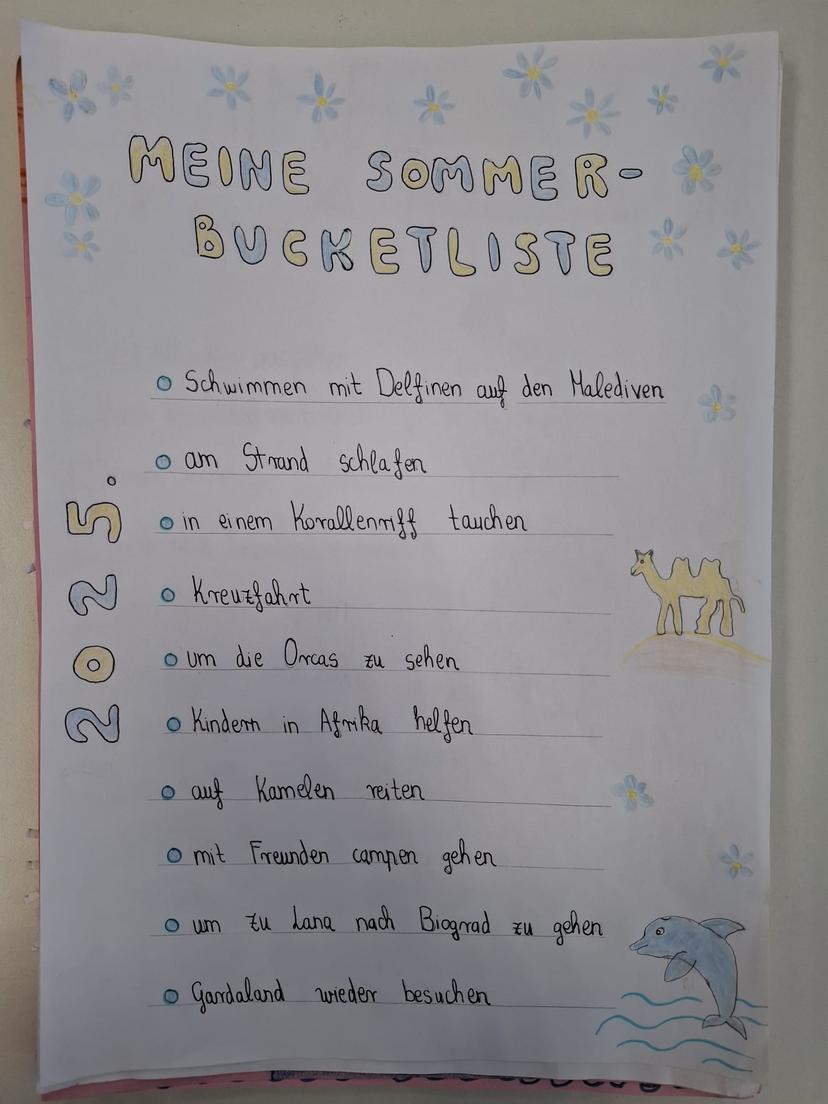 MEINE SOMMER-
BUCKETLISTE
2025.
Schwimmen mit Delfinen auf den Malediven
am Strand schlafen
in einem Korallenriff tauchen
Kreuzfahrt
um die Orcas zu sehen
Kindern in Afrika helfen
auf Kamelen reiten
mit Freunden campen gehen
um zu Lana nach Biograd zu gehen
Gardaland wieder besuchen